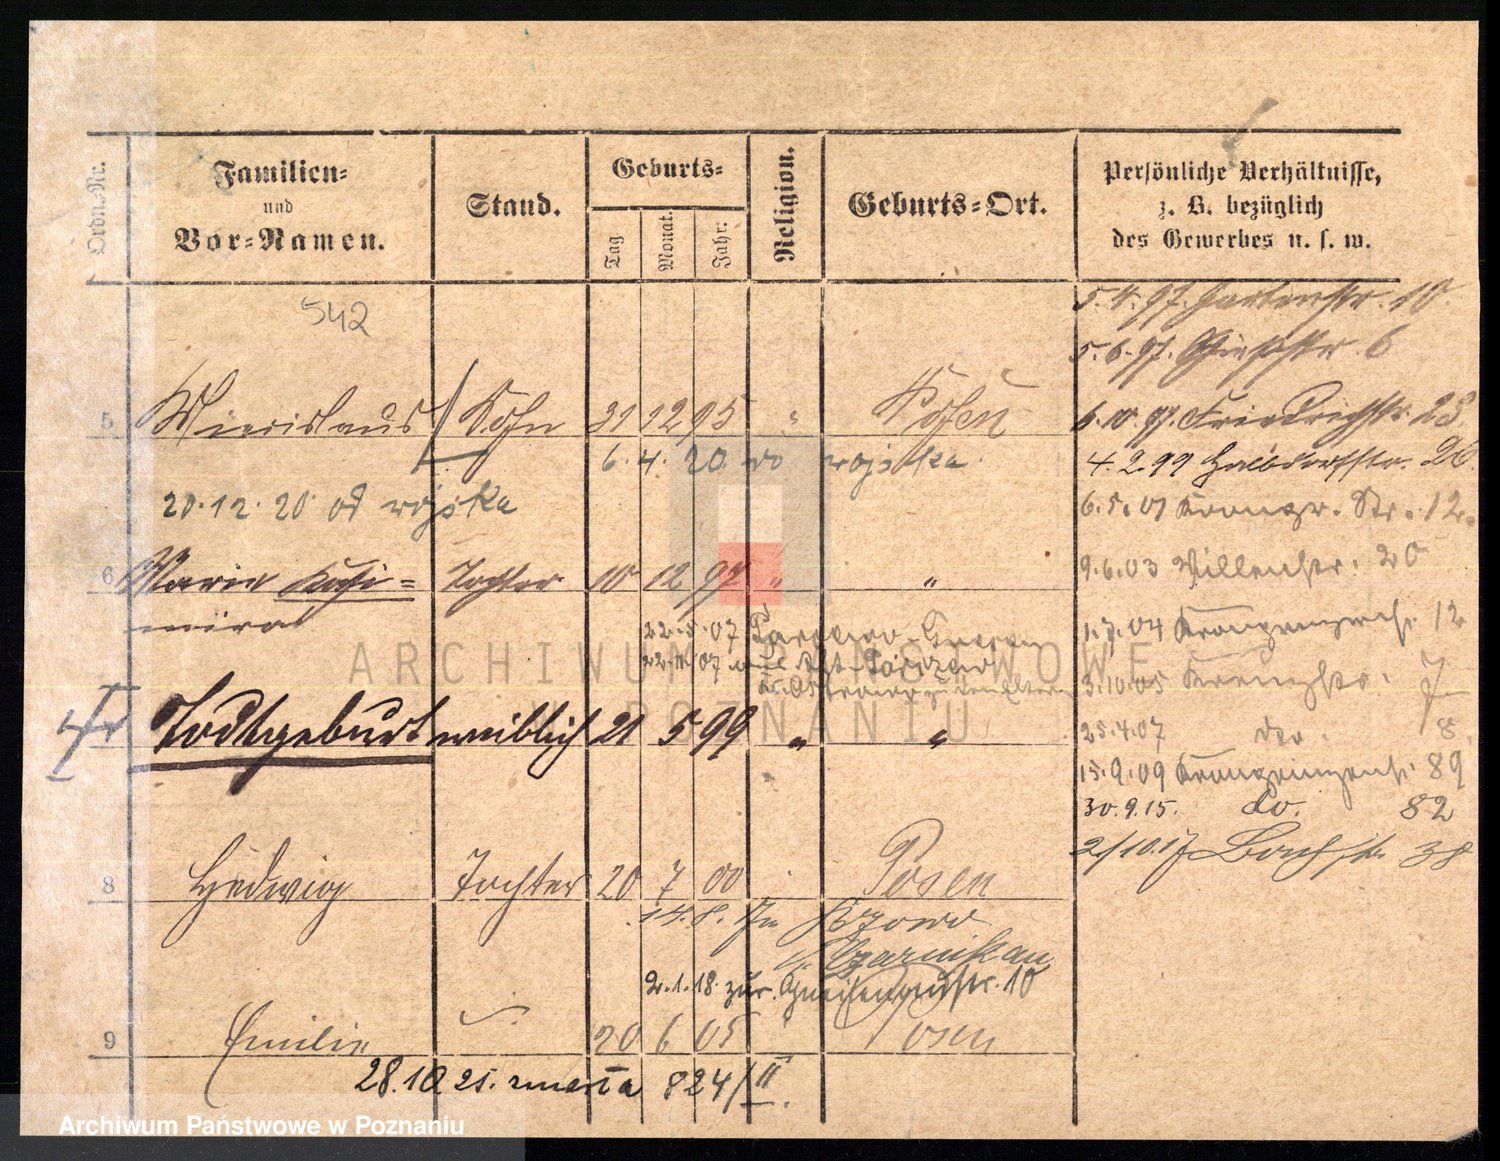 Ordn.-Nr.
Familien-
und
Vor-Namen.
Stand.
Geburts-
Tag
Monat.
Jahr:
Religion.
Geburts-Ort.
Persönliche Verhältnisse,
z. B. bezüglich
des Gewerbes u. s. w.
542
5.4.97. Gartenstr. 10.
5.6.97. 6
5 Sohn 31 12 95 " Posen
6.10.97. Friedrichstr. 28.
6.4.20 do wojska
4.2.99 Halbdorfstr. 26.
20.12.20 od wojska
6.5.01 Kronpr. Str. 12.
6 Marie Kasi= Tochter 10 12 97 " "
mira
9.6.03 Villenstr. 20
22.5.07
1.7.04 Kronprinzenst. 12
3.10.05 Kreuzstr. 7
Todtgeburt weiblich 21 5 99 " "
25.4.07 do. 8.
15.9.09 Kronprinzenst. 89
30.9.15. do. 82
2/10.17 Bachstr. 38
8 Hedwig Tochter 20 7 00 Posen
14.8. In
Czarnikau
2.1.18 zur. Gneisenaustr. 10
9 Emilie 20 6 05 Posen
28.10.21. zmarła 824/II.
ARCHIWUM PAŃSTWOWE
W POZNANIU
Archiwum Państwowe w Poznaniu